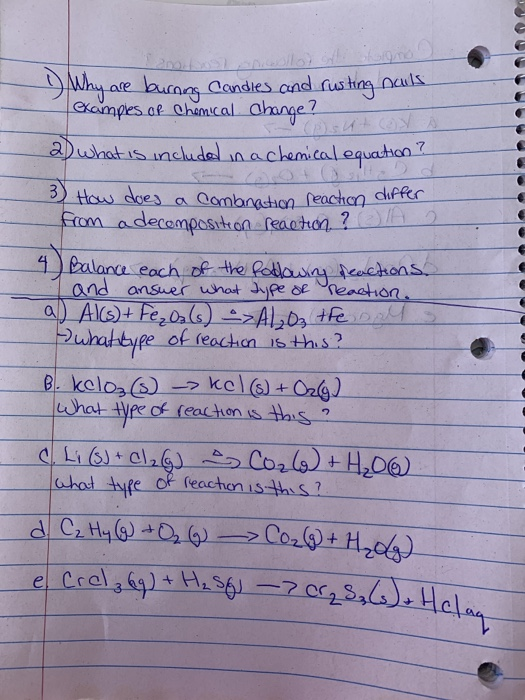 1) Why are burning candles and rusting nails
examples of chemical change?
2) what is included in a chemical equation?
3) How does a combination reaction differ
from a decomposition reaction. ?
4) Balance each of the following reactions.
and answer what type of reaction.
a) Al(s) + Fe₂O₃(s) △→ Al₂O₃ + Fe
→ what type of reaction is this?
B. kclO₃(s) → kcl(s) + O₂(g)
what type of reaction is this?
C. Li(s) + Cl₂(g) △→ CO₂(g) + H₂O(g)
what type of reaction is this?
d C₂H₄(g) + O₂(g) → CO₂(g) + H₂O(g)
e. Crcl₃(aq) + H₂S(g) → cr₂S₃(s) + Hclaq